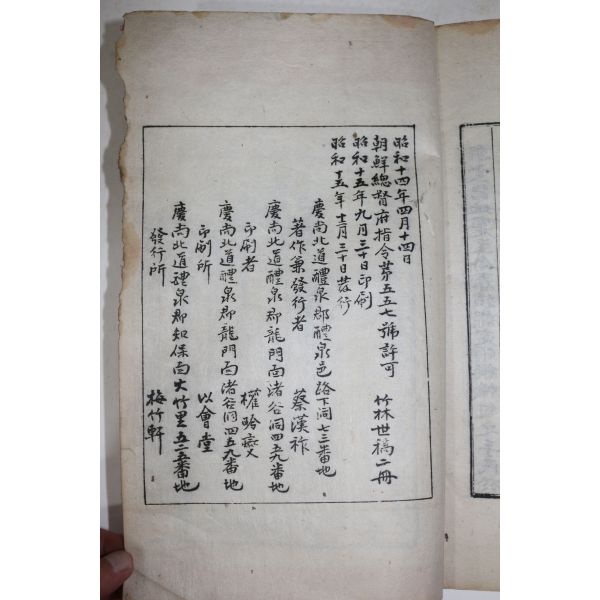 昭和十四年四月十四日
朝鮮總督府指令第五五七號許可 竹林世稿二冊
昭和十五年九月三十日印刷
昭和十五年十一月三十日發行
慶尚北道醴泉郡醴泉邑路下洞七三番地
著作兼發行者 蔡漢祚
慶尚北道醴泉郡龍門面渚谷洞四五九番地
印刷者 權
慶尚北道醴泉郡龍門面渚谷洞四五九番地
印刷所 以會堂
慶尚北道醴泉郡知保面大竹里五二五番地
發行所 梅竹軒